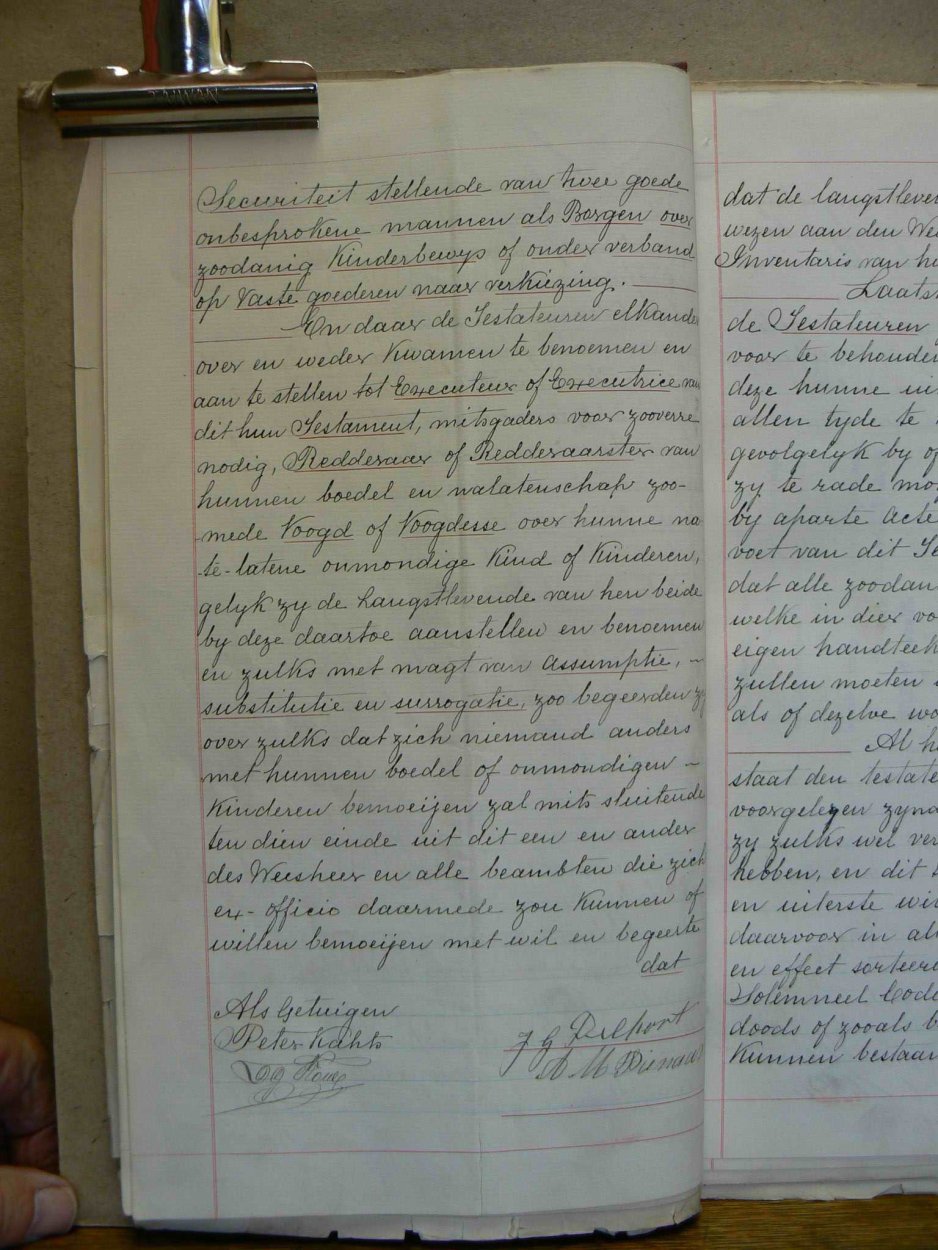 Securiteit stellende van twee goede
onbesprokene mannen als Borgen over
zoodanig Kinderbewys of onder verband
op vaste goederen naar verkiezing.
En daar de Testateuren elkande
over en weder kwamen te benoemen en
aan te stellen tot Executeur of Executrice van
dit hun Testament, mitsgaders voor zooverre
nodig, Redderaar of Redderaarster van
hunnen boedel en nalatenschap zoo-
mede Voogd of Voogdesse over hunne na
te-latene onmondige Kind of Kinderen,
gelyk zy de Langstlevende van hen beide
by deze daartoe aanstellen en benoemen
en zulks met magt van assumptie, ~
substitutie en surrogatie, zoo begeerden zy
over zulks dat zich niemand anders
met hunnen boedel of onmondigen ~
Kinderen bemoeijen zal mits sluitende
ten dien einde uit dit een en ander
des Weesheer en alle beambten die zich
ex-officio daarmede zou kunnen of
willen bemoeijen met wil en begeerte
dat
Als Getuigen
Peter Kahts
J G Delport
A M Pienaar
dat de langstleven
wezen aan den Wee
Inventaris van hu
Laatst
de Testateuren
voor te behouden
deze hunne ui
allen tyde te
gevolgelyk by of
zy te rade mog
by aparte Acte
voet van dit Te
dat alle zoodan
welke in dier vo
eigen handteek
zullen moeten
als of dezelve wo
Al h
staat den testate
voorgelezen zynd
zy zulks wel ver
hebben, en dit
en uiterste wil
daarvoor in al
en effect sorteere
Solemneel Codi
doods of zooals b
Kunnen bestaan